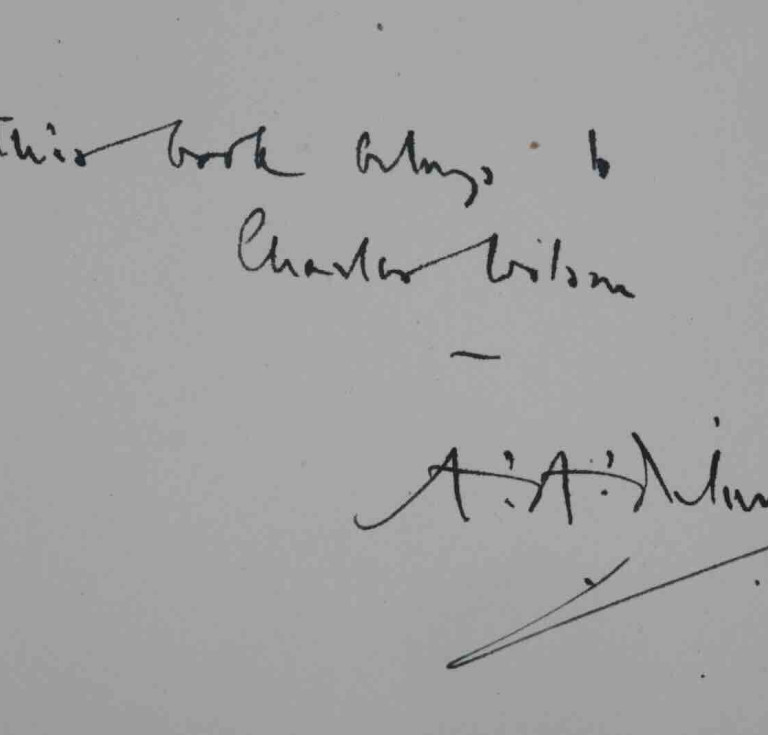 This book belongs to
Charles Wilson
—
A. A. Miln